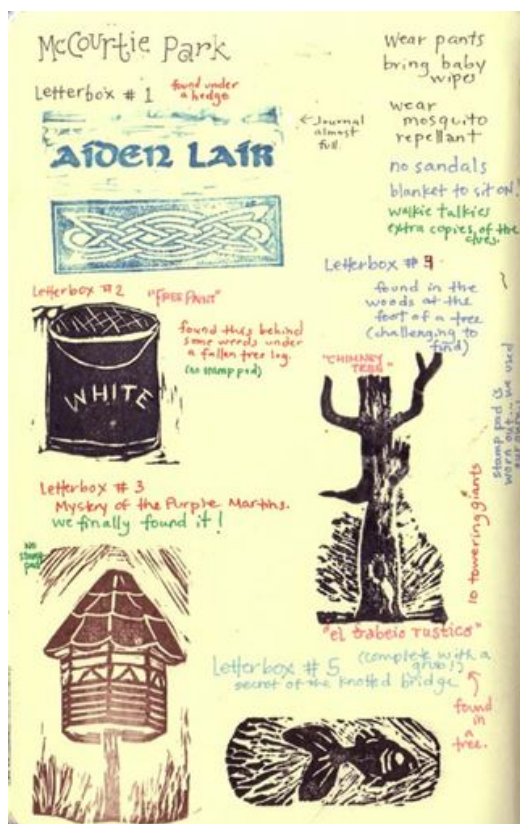 McCourtie Park
Letterbox # 1
found under
a hedge
← Journal
almost
full.
AIDEN LAIR
Letterbox #2
"FREE PAINT"
found this behind
some weeds under
a fallen tree log.
(no stamp pad)
WHITE
Letterbox # 3
Mystery of the Purple Martins.
we finally found it!
No
stamp
pad
Wear pants
bring baby
wipes
wear
mosquito
repellant
no sandals
blanket to sit on!
walkie talkies
extra copies of the
clues.
Letterbox #
found in the
woods at the
foot of a tree
(challenging to
find)
"CHIMNEY
TREE"
stamp pad is
worn out... we used
10 towering giants
"el trabeio rustico"
Letterbox # 5
(complete with a
grub!)
secret of the knotted bridge
found
in
a
tree.